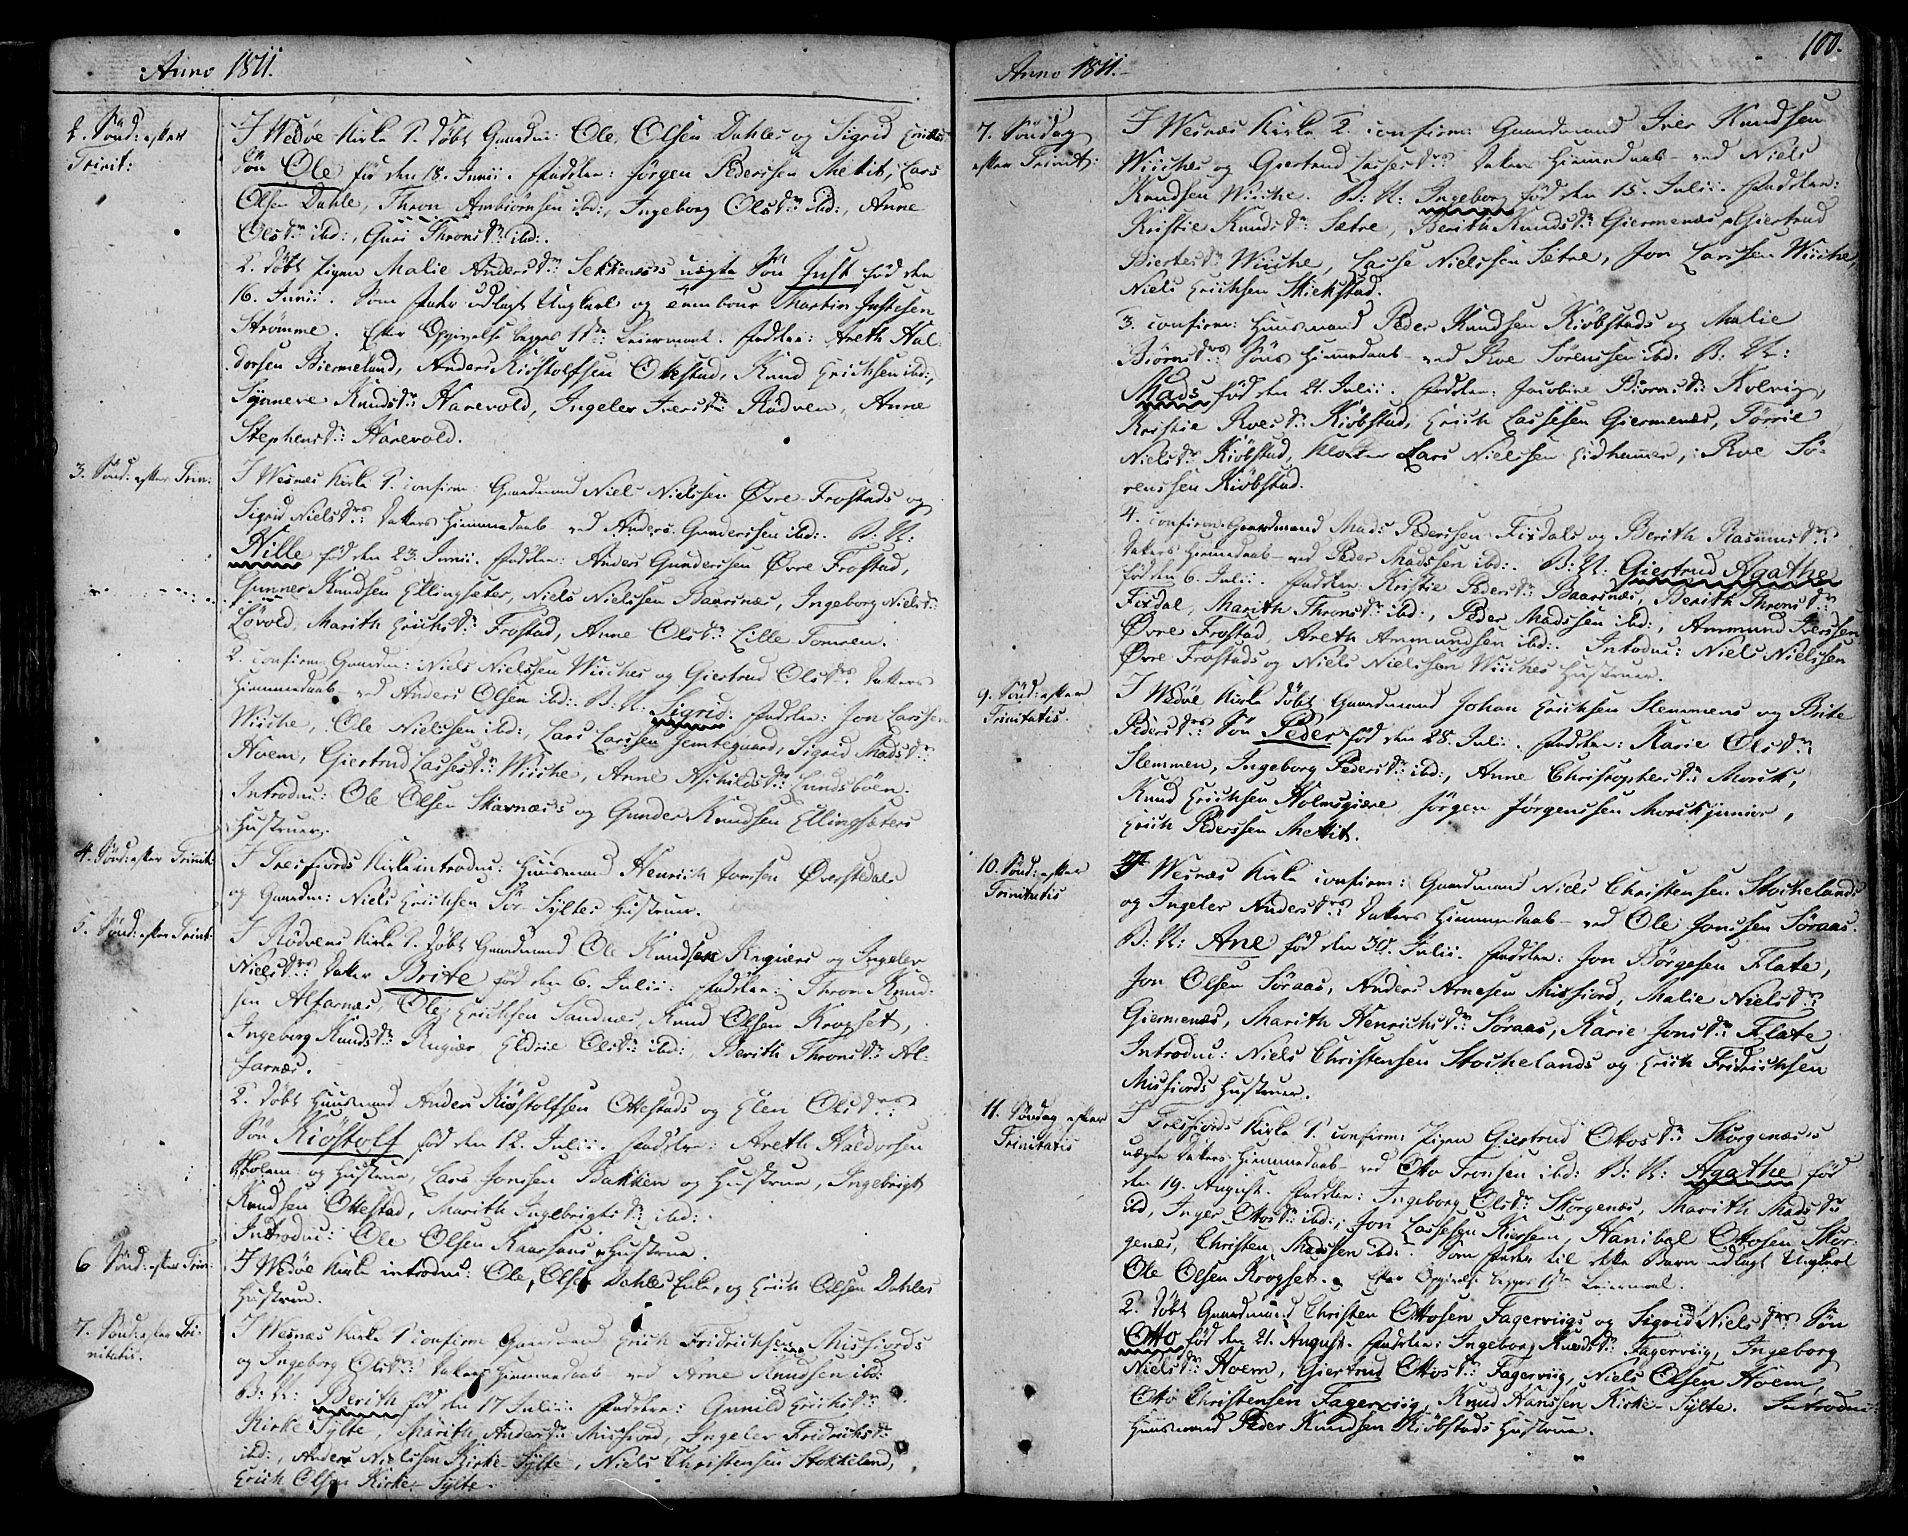 Anno 1811.
2. Sönd: efter
Trinit:
I Wedöe Kirke 1. döbt Gaardm: Ole Olsen Dahles og Sigrid Erichs
Sön Ole föd den 18. Junii. Fadder: Jörgen Pedersen Mettet, Lars
Olsen Dahle, Thron Ambiörnsen ibd:, Ingeborg Olsdr: ibd:, Anne
Olsdr: ibd:, Guri Thronsdr: ibd:.
2. döbt Pigen Malie Andersdr: Sekkenæs's uægte Sön Just föd den
16. Junii. Som Fader udlagt Ungkarl og Tambour Martin Justesen
Strömme. Efter Opgivelse begges 1ste Leiermaal. Fadder: Areth Hal-
dorsen Biermeland, Anders Kiöstolfsen Ottestad, Knud Erichsen ibd:,
Synneve Knudsdr: Harevold, Ingeler Iversdr: Rödven, Anne
Stephensdr: Harevold.
3. Sönd: efter Trin:
I Wesnes Kirke 1. confirm: Gaardmand Niels Nielssen Övre-Frostads og
Sigrid Nielsdrs: Datters Hiemmedaab ved Anders Gunderssen ibd:. B: N:
Hille föd den 23. Junii. Fadder: Anders Gunderssen Övre Frostad,
Gunner Knudsen Ellingsæter, Niels Nielssen Baarsnæs, Ingeborg Nielsdr:
Lövold, Marith Erichsdr: Frostad, Anne Olsdr: Lille Tomren.
2. confirm: Gaardm: Niels Nielssen Wiiches og Giertrud Olsdrs: Datters
Hiemmedaab ved Anders Olsen ibd: B: N: Sigrid. Fadder: Jon Larssen
Wiiche, Ole Nielssen ibd:, Lars Larssen Jemtegaard, Sigrid Madsdr:
Hoem, Giertrud Lassesdr: Wiiche, Anne Aschildsdr: Lundsböen.
Introdu: Ole Olsen Skavnæs's og Gunder Knudsen Ellingsæters
Hustruer.
4. Sönd: efter Trinit:
I Tresfiords Kirke introdu: Huusmand Henrich Jonsen Överstedals
og Gaardm: Niels Erichsen Sör-Syltes Hustruer.
5. Sönd: efter Trinit:
I Rödvens Kirke 1. döbt Gaardmand Ole Knudsen Rogiers og Ingeler
Nielsdrs: Datter Brite föd den 6. Julii. Fadder: Thron Knud-
sen Alfarnæs, Ole Erichsen Sandnæs, Knud Olsen Krogset,
Ingeborg Knudsdr: Rogiær, Eldrie Olsdr: ibd:, Berith Thronsdr: Al-
farnæs.
2. döbt Huusmand Anders Kiöstolfsen Ottestads og Elen Olsdrs:
Sön Kiöstolf föd den 12. Julii. Fadder: Areth Haldorsen
Holem og Hustrue, Lars Jonsen Bakken og Hustrue, Ingebrigt
Knudsen Ottestad, Marith Ingebrigtsdr: ibd:.
Introdu: Ole Olsen Kaarsans Hustrue.
6 Sönd: efter Trin:
I Wedöe Kirke introdu: Ole Olsen Dahles Enke, og Erich Olsen Dahles
Hustrue.
7. Sönd: efter Tri-
nitatis.
I Wesnæs Kirke 1. confirm: Gaardmand Erich Fridrichsen Misfiords
og Ingeborg Olsdrs: Datters Hiemmedaab ved Arne Knudsen ibd:
B: N: Berith föd den 17 Julii. Fadder: Gunild Erichsdr:
Kirke-Sylte, Marith Andersdr: Misfiord, Ingeler Fridrichsdr:
ibd:, Anders Nielssen Kirke-Sylte, Niels Christensen Stokkeland,
Erich Olsen Kirke-Sylte.
Anno 1811.
100.
7. Söndag
efter Trinit:
I Wesnæs Kirke 2. confirm: Gaardmand Iver Knudsen
Wiiches og Giertrud Lassesdrs: Datters Hiemmedaab ved Niels
Knudsen Wiiche. B: N: Ingeborg föd den 15. Julii. Fadder:
Kristie Knudsdr: Sætre, Berith Knudsdr: Giermenæs, Giertrud
Biertesdr: Wiiche, Lasse Nielssen Sætre, Jon Larssen Wiiche,
Niels Erichsen Skiekstad.
3. confirm: Huusmand Peder Knudsen Kiöbstads og Malie
Biörnsdrs: Söns Hiemmedaab ved Roe Sörenssen ibd. B: N:
Mads föd den 21. Julii. Fadder: Jacobine Biörnsdr: Kolvig,
Kristie Roesdr: Kiöbstad, Erich Lassesen Giermenæs, Törrie
Nielsdr: Kiöbstad, Klokker Lars Nielssen Eidhammer, Roe Sö-
renssen Kiöbstad.
4. confirm: Gaardmand Mads Pederssen Fixdals og Berith Rasmusdrs:
Datters Hiemmedaab ved Peder Madssen ibd:. B: N: Giertrud Agathe
föd den 6. Julii. Fadder: Kristie Pedersdr: Baarsnæs, Berith Thronsdr:
Fixdal, Marith Thronsdr: ibd:, Peder Madssen ibd:, Ammund Iverssen
Övre Frostad, Areth Ammundsen ibd:. Introdu: Niels Nielssen
Övre Frostads og Niels Nielssen Wiiches Hustruer.
9. Sönd: efter
Trinitatis.
I Wedöe Kirke döbt Gaardmand Johan Erichsen Slemmens og Brite
Pedersdrs: Sön Peder föd den 28. Julii. Fadder: Karie Olsdr:
Slemmen, Ingeborg Pedersdr: ibd:, Anne Christophersdr: Morsk,
Knud Erichsen Holmsgiære, Jörgen Jörgenssen Morsk junior,
Erich Pederssen Mettet.
10. Sönd: efter
Trinitatis
I Wesnæs Kirke confirm: Gaardmand Niels Christensen Stochelands
og Ingeler Andersdrs: Datters Hiemmedaab ved Ole Jonssen Söraas.
B: N: Ane föd den 30. Julii. Fadder: Jon Börgesen Flate,
Jon Olsen Söraas, Anders Arnesen Misfiord, Malie Nielsdr:
Giermenæs, Marith Henrichsdr: Söraas, Karie Jonsdr: Flate
Introdu: Niels Christensen Stochelands og Erich Fridrichsen
Misfiords Hustruer.
11. Söndag efter
Trinitatis
I Tresfiords Kirke 1. confirm: Pigen Giertrud Ottosdr: Skorgenæs's
uægte Datters Hiemmedaab ved Otto Tronsen ibd: B: N: Agathe föd
den 19. August. Fadder: Ingeborg Olsdr: Skorgenæs, Marith Madsdr:
ibd, Inger Ottosdr: ibd:, Jon Lassesen Kiersem, Hanibal Ottosen Skor-
genæs, Christen Madssen ibd:. Som Fader til dette Barn udlagt Ungkarl
Ole Olsen Krogset. Efter Opgivelse begges 1ste Leiermaal.
2. döbt Gaardmand Christen Ottosen Fagerviigs og Sigrid Nielsdrs: Sön
Otto föd den 21. August. Fadder: Ingeborg Knudsdr: Fagerviig, Ingeborg
Nielsdr: Hoem, Giertrud Ottosdr: Fagerviig, Niels Olsen Hoem,
Otto Christensen Fagerviig, Knud Hanssen Kirke-Sylte. Introdu:
Huusmand Peder Knudsen Kiöbstads Hustrue.